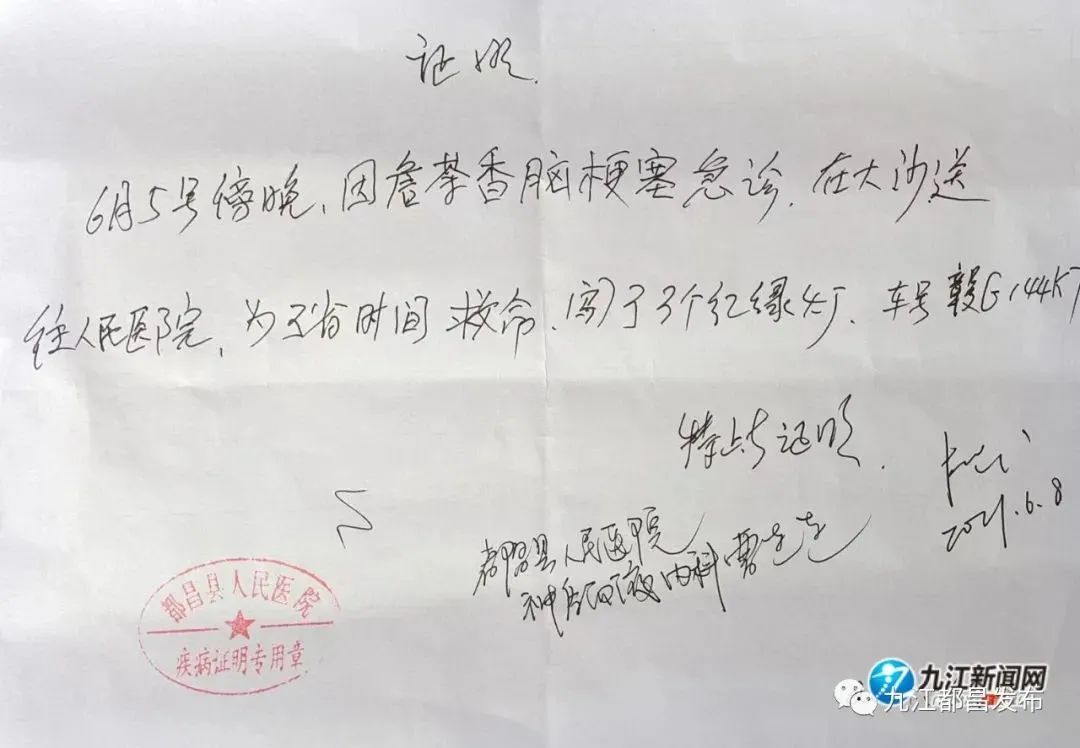 证明
6月5号傍晚、因詹茶香脑梗塞急诊.在大沙送
往人民医院,为了省时间救命.闯了3个红绿灯、车号赣G144K
特此证明.
2021.6.8
都昌县人民医院
神经内科
都昌县人民医院
疾病证明专用章
九江新闻网
九江都昌发布